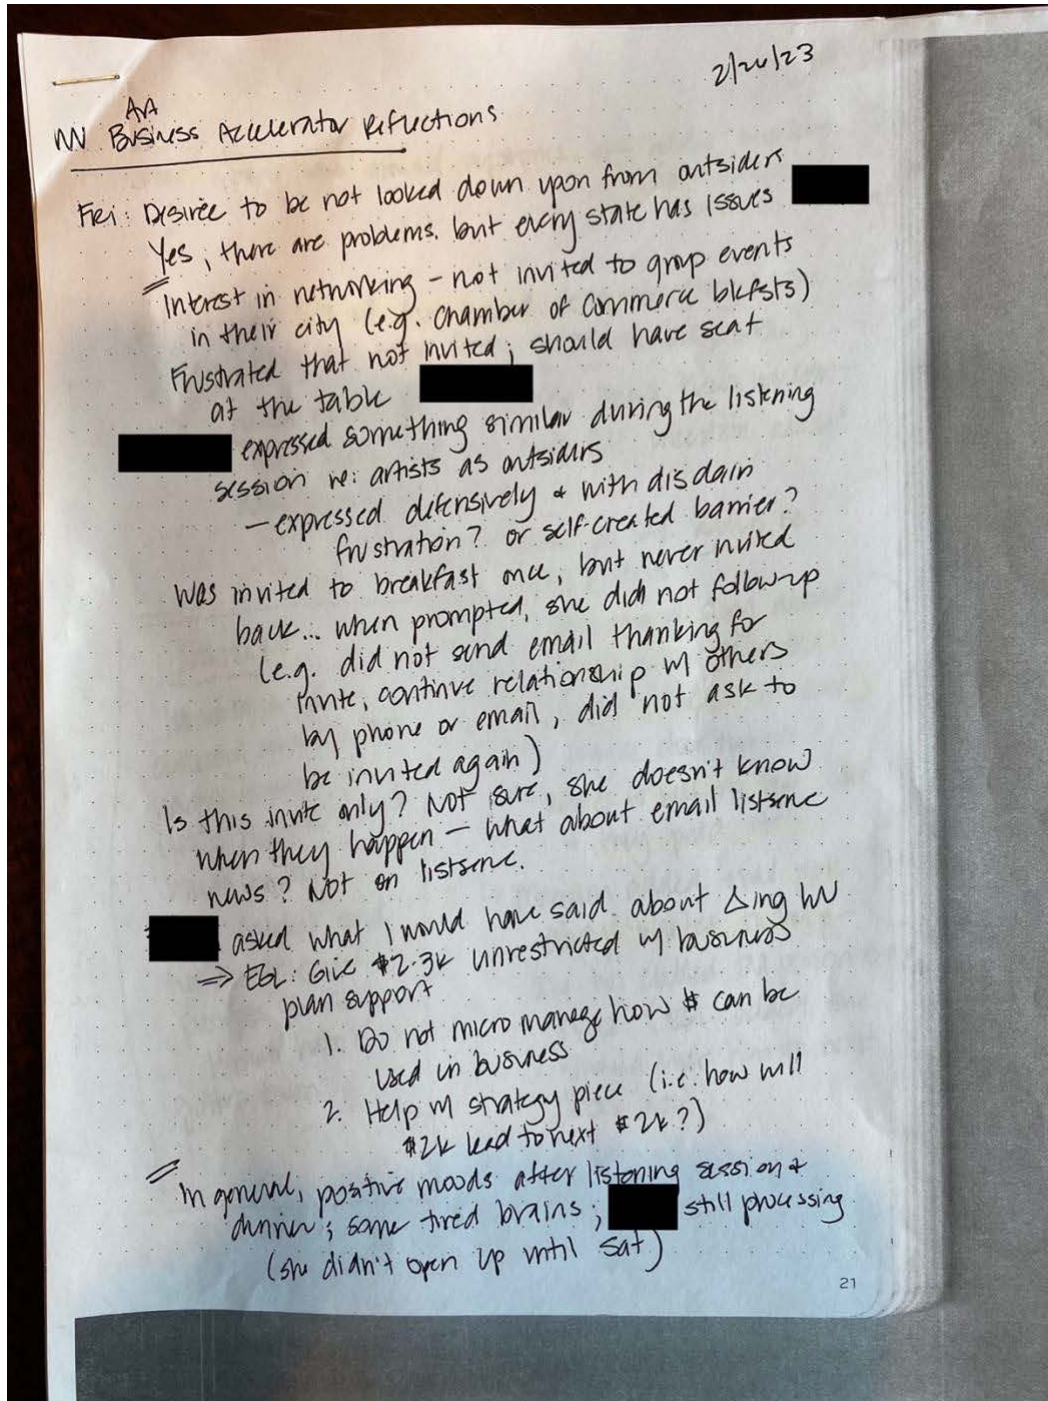 2/26/23
AA
WV Business Accelerator Reflections
Fri: Desire to be not looked down upon from outsiders
Yes, there are problems. but every state has issues
Interest in networking - not invited to group events
in their city (e.g. chamber of commerce bkfsts)
Frustrated that not invited; should have seat
at the table
expressed something similar during the listening
session re: artists as outsiders
- expressed defensively & with disdain
frustration? or self-created barrier?
Was invited to breakfast once, but never invited
back... when prompted, she did not follow-up
(e.g. did not send email thanking for
invite, continue relationship w/ others
by phone or email, did not ask to
be invited again)
Is this invite only? Not sure, she doesn't know
when they happen - what about email listserve
news? Not on listserve.
asked what I would have said about Δing WV
⇒ EGL: Give $2-3k unrestricted w/ business
plan support
1. Do not micro manage how $ can be
used in business
2. Help w/ strategy piece (i.e. how will
$2k lead to next $2k?)
In general, positive moods after listening session &
dinner; some tired brains; still processing
(she didn't open up until Sat)
21